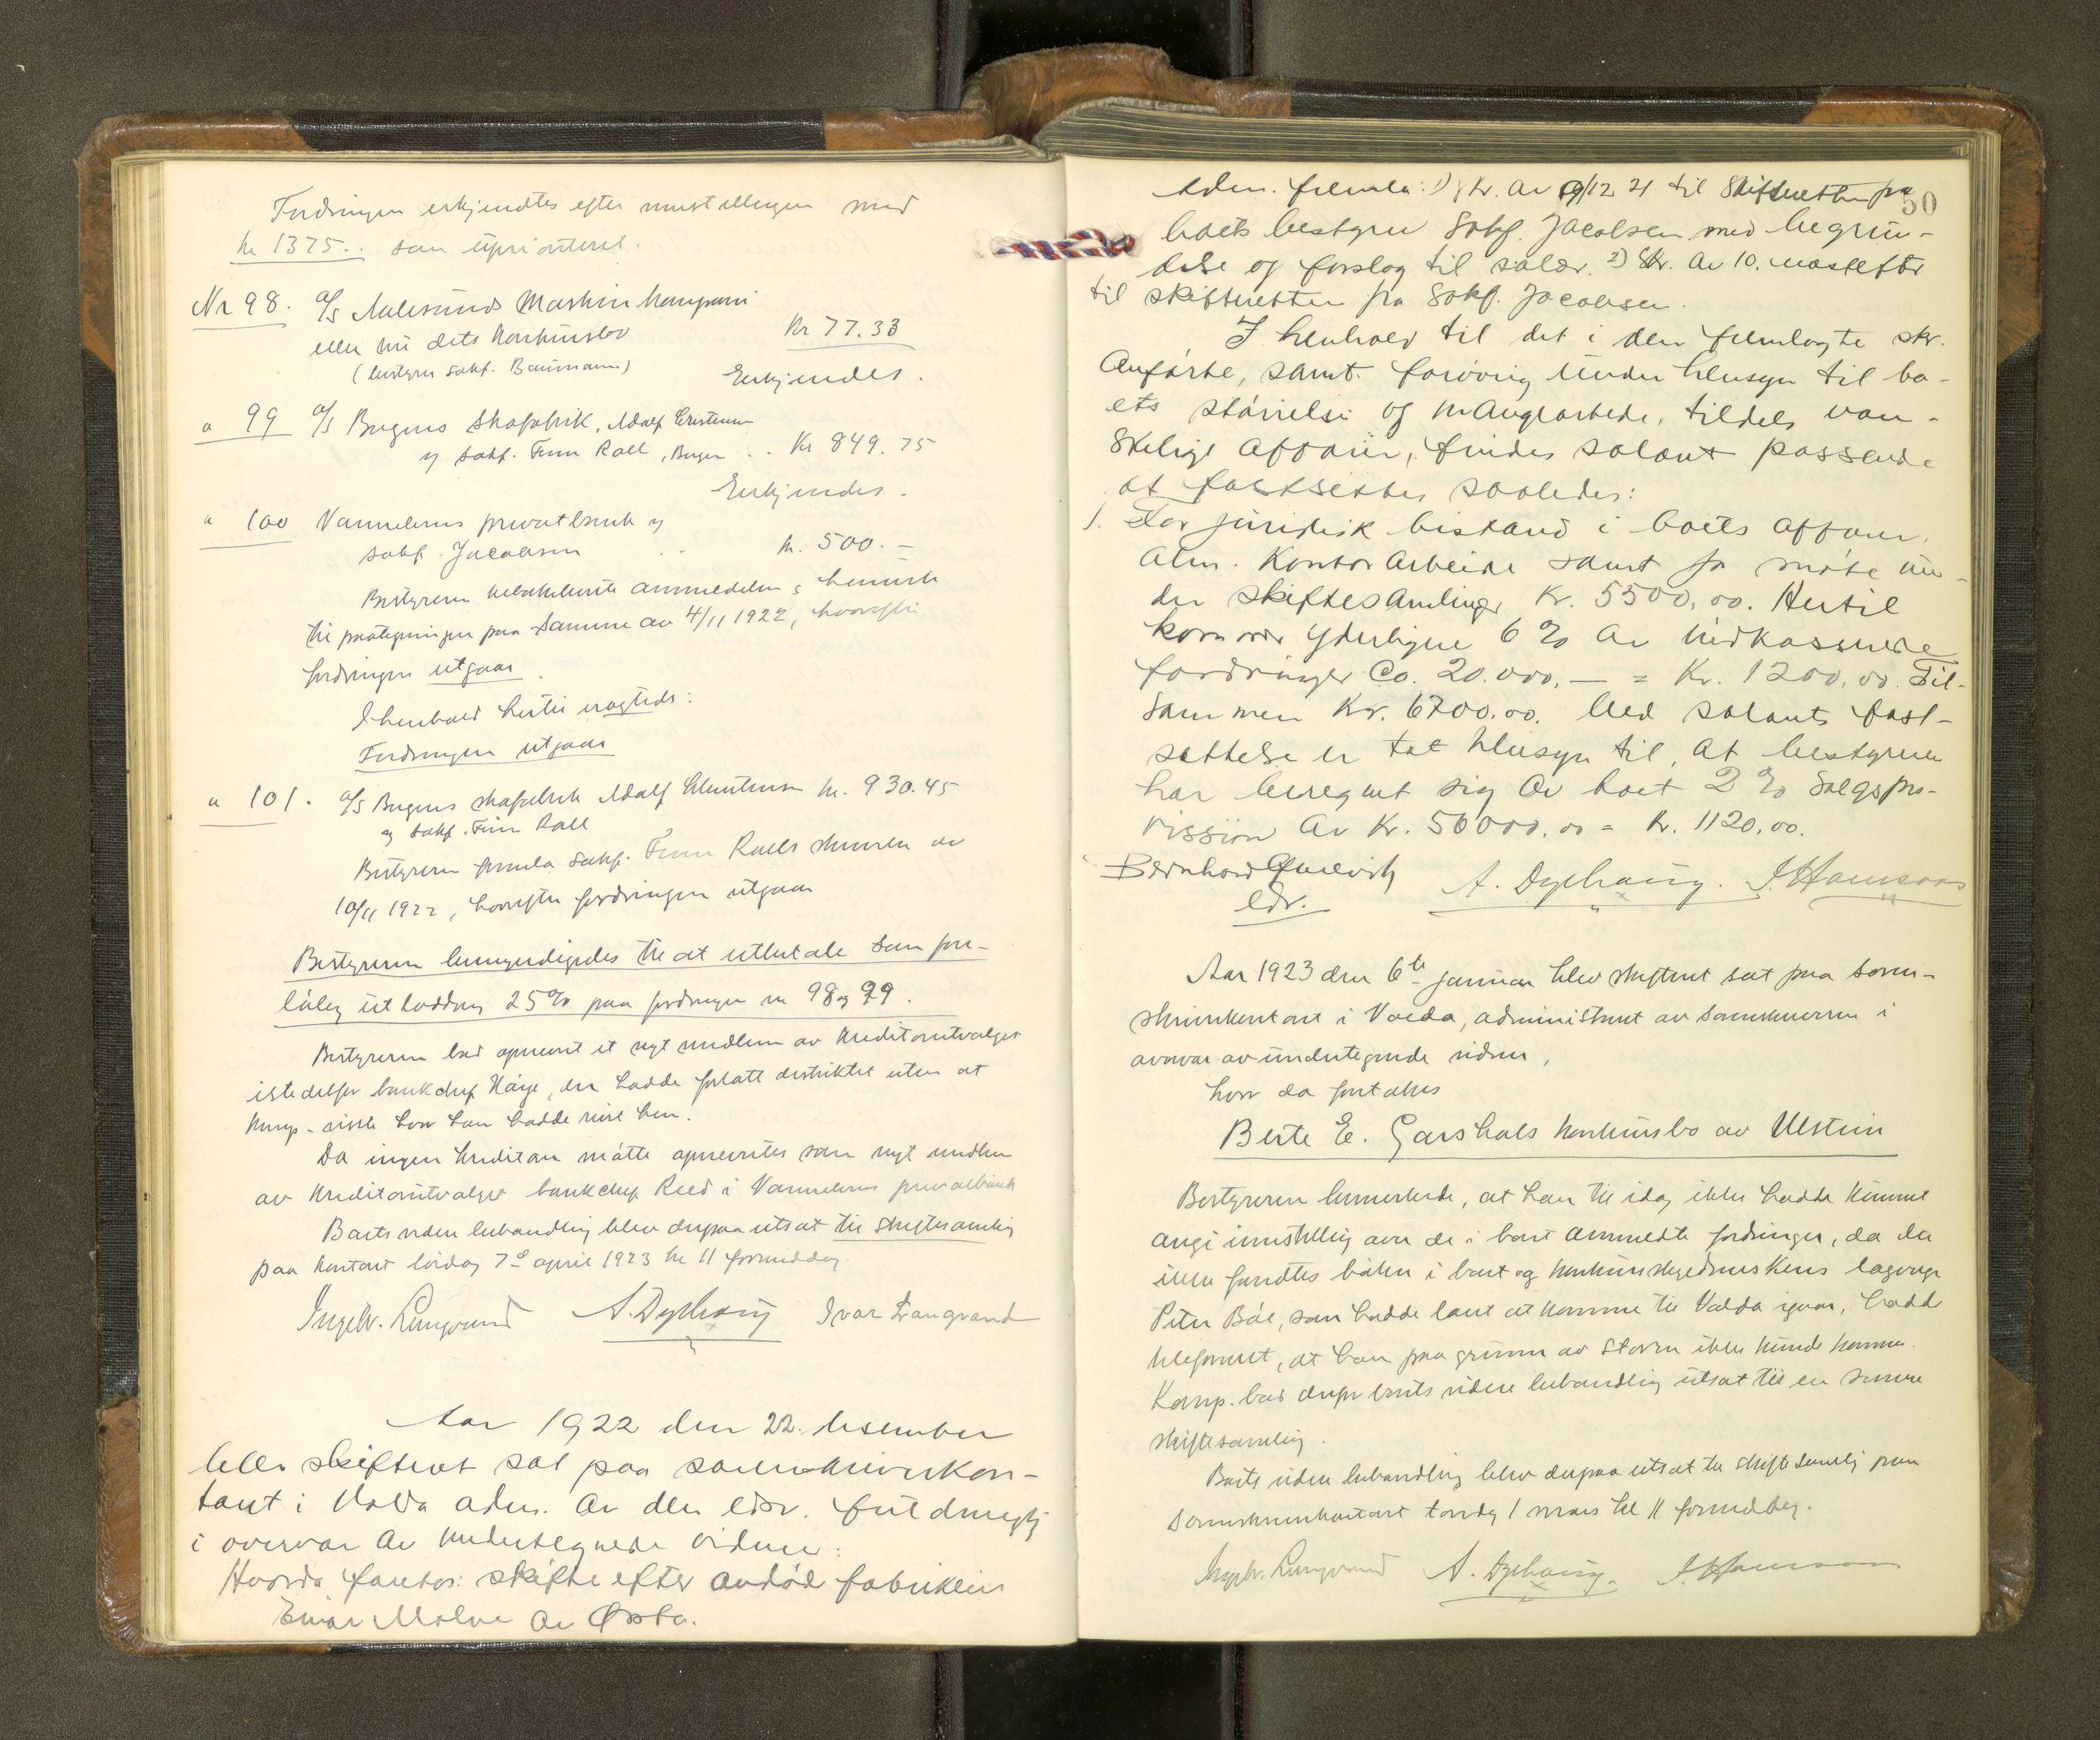 Fordringen erkjendtes efter innstillingen med
kr 1375.- som uprioritert.
Nr 98. a/s Aalesunds Maskinkompani
eller nu dets konkursbo Kr 77.33
(bestyrer sakf. Baumann)
Erkjendes.
" 99 a/s Bergens Skofabrik, Adolf Christensen
v/ sakf. Finn Rall, Bergen .. Kr 849.75
Erkjendes.
" 100 Vannelvens privatbank v/
sakf. Jacobsen .. kr. 500.-
Bestyreren anmeldelsen & henviste
til paategningen paa samme av 4/11 1922, hvorefter
fordringen utgaar.
I henhold hertil vragtedes:
Fordringen utgaar
" 101. a/s Bergens skofabrik Adolf Christensen kr. 930.45
v/ sakf. Finn Rall
Bestyreren fremla sakf. Finn Ralls skrivelse av
10/11 1922, hvorefter fordringen utgaar
Bestyreren bemyndigedes til at utbetale som fore-
løbig utlodding 25% paa fordringer nr 98 og 99.
Bestyreren bad opnevnt et nyt medlem av kreditorutvalget
istedetfor bankchef Køye, der hadde forlatt distriktet uten at
komp. visste hvor han hadde reist hen.
Da ingen kreditor møtte opnevntes som nyt medlem
av kreditorutvalget bankchef Reed i Vannelvens privatbank
Boets videre behandling blev derpaa utsat til skiftesamling
paa kontoret lørdag 7de april 1923 kl 11 formiddag.
Ingolv. Langvand A. Dyshavig Ivar Langvand
Aar 1922 den 22. desember
blev skifteret sat paa sorenskriverkon-
toret i Volda adm. av den edsv. fuldmegtig
i overvær av undertegnede vidner:
Hvorda foretos: skifte efter avdød fabrikeier
Einar Molne av Ørsta.
50
Adm. fremla: 1) skr. av 9/12 21 til Skifteretten fra
boets bestyrer Sakf. Jacobsen med begrun-
delse og forslag til salær. 2) Skr. av 10. næstefter
til skifteretten fra Sakf. Jacobsen.
I henhold til det i den fremlagte skr.
anførte, samt forøvrig under hensyn til bo-
ets størrelse og mangeartede, tildels van-
skelige affærer, findes salæret passende
at fastsettes saaledes:
1. For juridisk bistand i boets affærer,
alm. Kontorarbeide samt for møte un-
der skiftesamlinger Kr. 5500,00. Hertil
kommer yderligere 6% av indkasserte
fordringer Ca. 20.000,- = Kr. 1200,00. Til-
sammen Kr. 6700,00. Ved salærets fast-
settelse er tat hensyn til, at bestyreren
har beregnet sig av boet 2% Salgspro-
vission av Kr. 56000,00 = Kr. 1120,00.
Bernhard
edsv. A. Dyshavig. J. Hamsaas
Aar 1923 den 6te januar blev skifteret sat paa soren-
skriverkontoret i Volda, administrert av sorenskriveren i
overvær av undertegnede vidner,
hvor da foretokes
Berte E. Garshols konkursbo av Ulstein
Bestyreren bemerkede, at han til idag ikke hadde kunnet
avgi innstilling over de i boet anmeldte fordringer, da der
ikke fandtes bøker i boet og konkursskyldnerskens lagverge
Peter Bøe, som hadde lovet at komme til Volda igaar, hadde
telefonert, at han paa grunn av storm ikke kunde komme.
Komp. bad derfor boets videre behandling utsat til en senere
skiftesamling.
Boets videre behandling blev derpaa utsat til skiftesamling paa
sorenskriverkontoret torsdag 1 mars kl 11 formiddag.
Ingolv. Langvand A. Dyshavig. J. Hamsaas